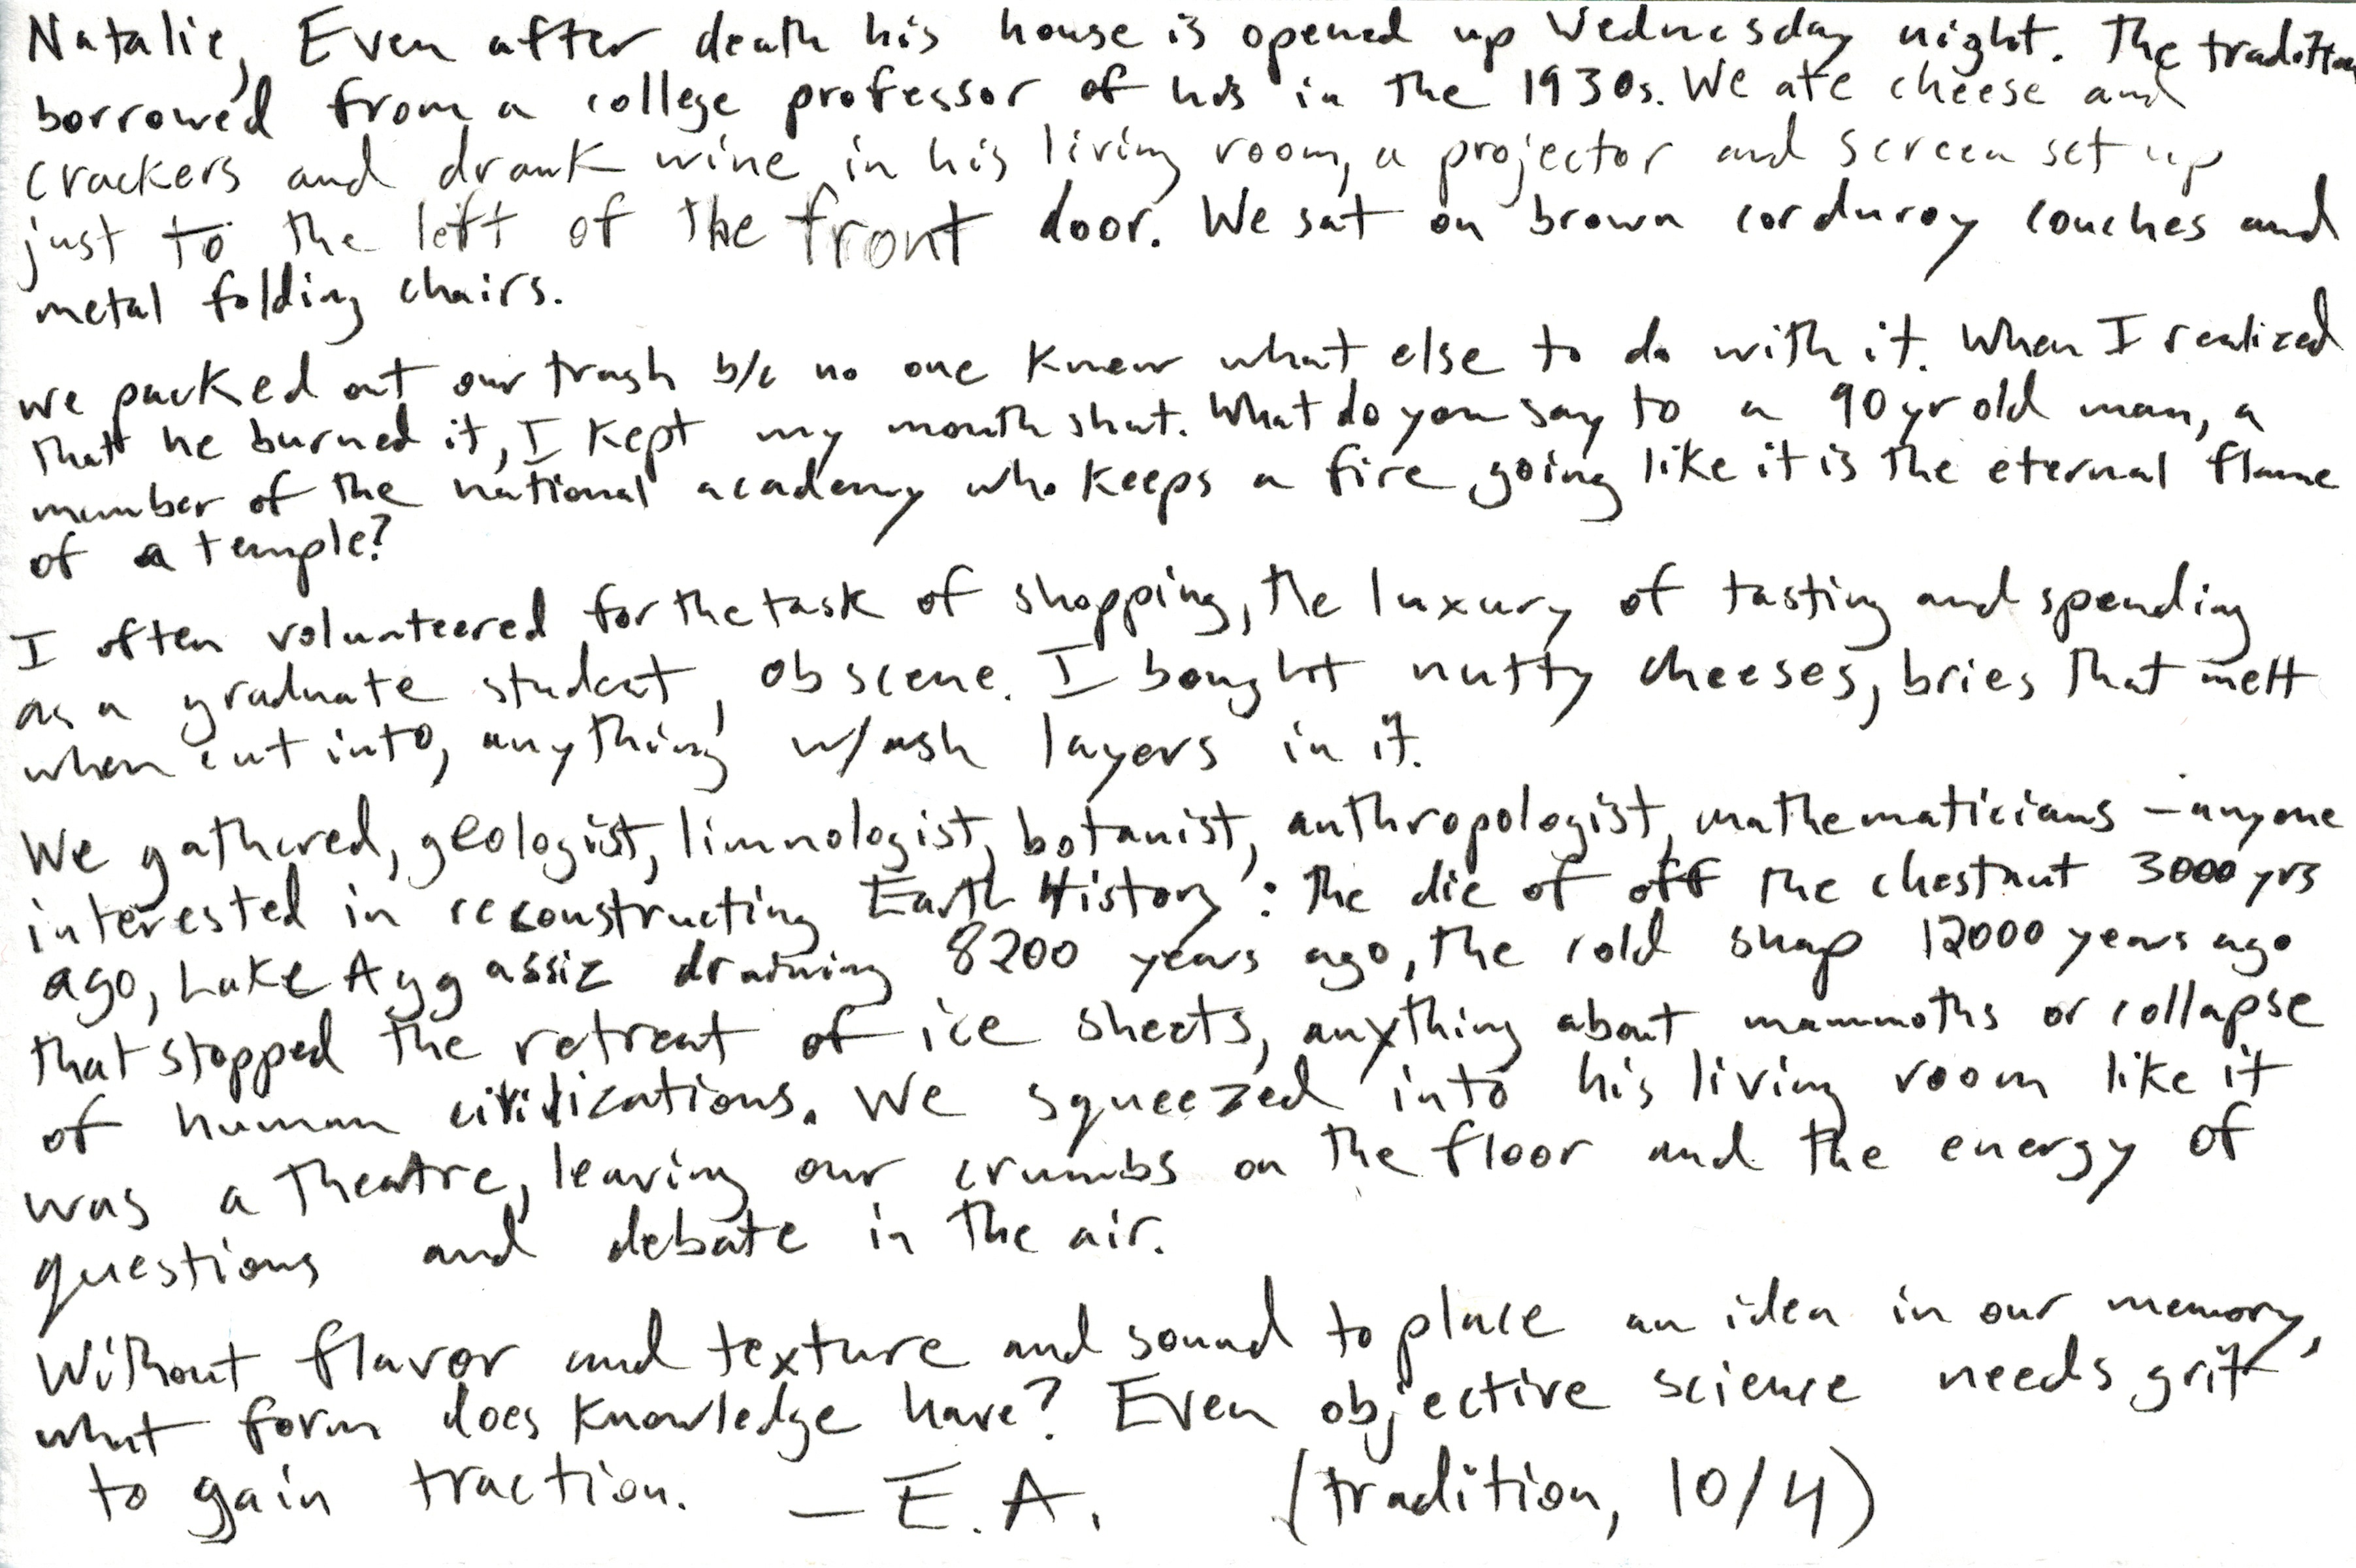 Natalie, Even after death his house is opened up Wednesday night. The tradition
borrowed from a college professor of his in the 1930s. We ate cheese and
crackers and drank wine in his living room, a projector and screen set up
just to the left of the front door. We sat on brown corduroy couches and
metal folding chairs.
we packed out our trash b/c no one knew what else to do with it. When I realized
that he burned it, I kept my mouth shut. What do you say to a 90 yr old man, a
member of the national academy who keeps a fire going like it is the eternal flame
of a temple?
I often volunteered for the task of shopping, the luxury of tasting and spending
as a graduate student, obscene. I bought nutty cheeses, bries that melt
when cut into, anything w/ash layers in it.
We gathered, geologist, limnologist, botanist, anthropologist, mathematicians – anyone
interested in reconstructing Earth History: The die of off the chestnut 3000 yrs
ago, Lake Aggassiz draining 8200 years ago, the cold snap 12000 years ago
that stopped the retreat of ice sheets, anything about mammoths or collapse
of human civilizations. We squeezed into his living room like it
was a theatre, leaving our crumbs on the floor and the energy of
questions and debate in the air.
Without flavor and texture and sound to place an idea in our memory,
what form does knowledge have? Even objective science needs grit
to gain traction. – E.A. (tradition, 10/4)